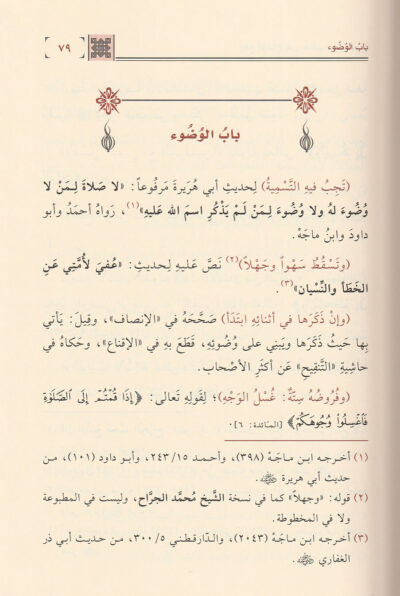 باب الوُضُوء
٧٩
بابُ الوُضُوء
(تَجِبُ فيهِ التَّسْمِيةُ) لِحديثِ أبي هُرَيرةَ مَرفُوعاً: «لا صَلاةَ لِـمَنْ لا
وُضُوءَ لهُ ولا وُضُوءَ لِـمَنْ لَـمْ يَذْكُرِ اسمَ الله عَليهِ»(١)، رَواهُ أحمَدُ وأبو
داودَ وابنُ ماجَهْ.
(وتَسْقُطُ سَهْواً وجَهْلاً)(٢) نَصَّ عَليهِ لِحديثِ: «عُفيَ لأُمَّتِي عَنِ
الخَطَأ والنِّسْيان»(٣).
(وإنْ ذَكَرَها في أثنائِهِ ابتَدَأَ) صَحَّحَهُ في «الإنصاف»، وقِيلَ: يَأتي
بِها حَيثُ ذَكَرَها ويَبني على وُضُوئِهِ، قَطَعَ بهِ في «الإقناع»، وحَكاهُ في
حاشِيةِ «التَّنْقِيحِ» عَن أكثَرِ الأصْحاب.
(وفُرُوضُهُ سِتّةٌ: غُسْلُ الوَجْهِ)؛ لِقَولِهِ تَعالى: ﴿إِذَا قُمْتُمْ إِلَى الصَّلَوٰةِ
فَٱغْسِلُوا۟ وُجُوهَكُمْ﴾ [المَائدة: ٦].
(١) أخرجه ابن ماجَهْ (٣٩٨)، وأحمد ٢٤٣/١٥، وأبو داود (١٠١)، من
حديث أبي هريرة ﵁.
(٢) قوله: «وجهلاً» كما في نسخة الشَّيخ مُحمَّد الجرَّاح، وليست في المطبوعة
ولا في المخطوطة.
(٣) أخرجه ابن ماجَهْ (٢٠٤٣)، والدّارقطني ٣٠٠/٥، من حديث أبي ذر
الغفاري ﵁.